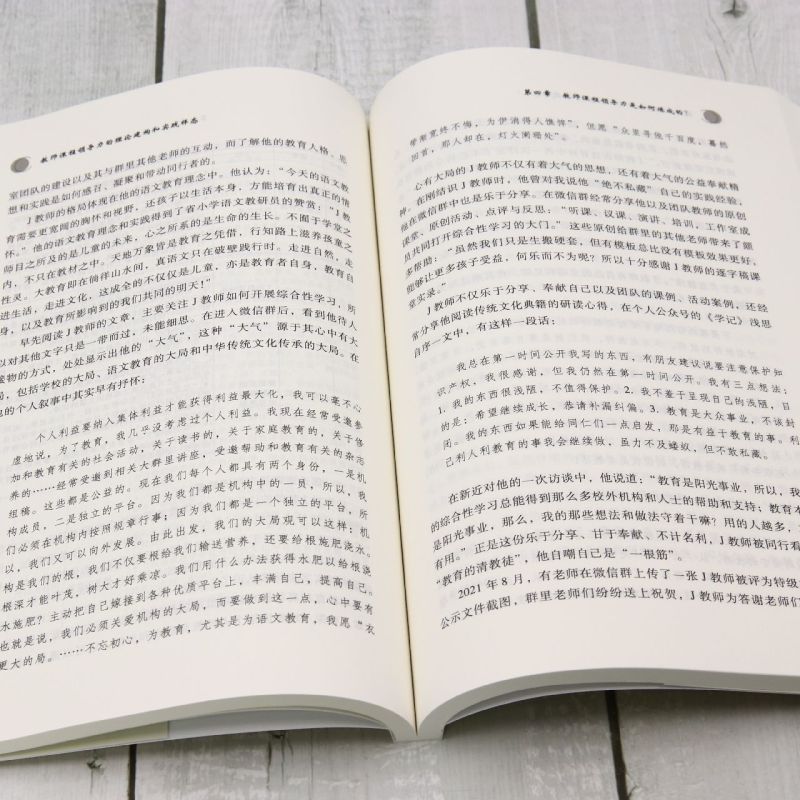 教师课程领导力的理论建构和实践样态
室团队的建设以及其与群里其他老师的互动，而了解他的教育人格、思
想和实践是如何感召、凝聚和带动同行者的。
J教师的格局体现在他的语文教育理念中。他认为：“今天的语文教
育需要更宽阔的胸怀和视野，还孩子以生活本身，方能培育出真正的情
怀。”他的语文教育理念和实践得到了省小学语文教研员的赞赏：“J教
师目之所及的是儿童的未来，心之所系的是生命的生长。不囿于学堂之
内，不只在教材之中。天地万象皆是教育之凭借，行知路上滋养孩童之
性灵。大教育即在徜徉山水间，真语文只在破壁践行时。走进自然，走
进生活，走进文化，这成全的不仅仅是儿童，亦是教育者自身，教育自
身，以及教育所影响到的我们共同的明天！”
早先阅读J教师的文章，主要关注J教师如何开展综合性学习，所
以对其他文字只是一带而过，未能细思。在进入微信群后，看到他待人
接物的方式，处处显示出他的“大气”，这种“大气”源于其心中有大
局，包括学校的大局、语文教育的大局和中华传统文化传承的大局。在
他的个人叙事中其实早有抒怀：
个人利益要纳入集体利益才能获得利益最大化，我可以毫不心
虚地说，为了教育，我几乎没考虑过个人利益。我现在经常受邀参
加和教育有关的社会活动，关于读书的，关于家庭教育的，关于修
养的……经常受到相关大群里讲座，受邀帮助和教育有关的杂志
组稿。这些都是公益的。现在我们每个人都具有两个身份，一是机
构成员，二是独立的平台。因为我们都是机构中的一员，所以，我
们必须在机构内按照规章行事；因为我们都是一个独立的平台，所
以，我们又可以向外发展。由此出发，我们的大局观可以这样：机
构是我们的根，我们不仅要根给我们输送营养，还要给根施肥浇水。
根深才能叶茂，树大才好乘凉。我们用什么办法获得水肥以给根浇
水施肥？主动把自己嫁接到各种优质平台上，丰满自己，提高自己。
也就是说，我们必须关爱机构的大局，而要做到这一点，心中要有
更大的局。……不忘初心，为教育，尤其是为语文教育，我愿“衣
第四章 教师课程领导力是如何炼成的
带渐宽终不悔，为伊消得人憔悴”，但愿“众里寻他千百度，蓦然
回首，那人却在，灯火阑珊处”。
心有大局的J教师不仅有着大气的思想，还有着大气的公益奉献精
神。在刚结识J教师时，他曾对我说他“绝不私藏”自己的实践经验，
他在微信群中也是乐于分享。在微信群经常分享他以及团队教师的原创
课堂、原创活动、点评与反思：“听课、议课、演讲、培训，工作室成
员共同打开综合性学习的大门。”这些原创给群里的其他老师带来了颇
多帮助：“虽然我们只是生搬硬套，但有模板总比没有模板效果更好，
能够让更多孩子受益，何乐而不为呢？所以十分感谢J教师的逐字稿课
堂实录。”
J教师不仅乐于分享、奉献自己以及团队的课例、活动案例，还经
常分享他阅读传统文化典籍的研读心得，在个人公众号的《学记》浅思
自序一文中，有这样一段话：
我总在第一时间公开我写的东西，有朋友建议说要注意保护知
识产权，我很感谢，但我仍然在第一时间公开。我有三点想法：
1. 我的东西很浅陋，不值得保护。2. 我不羞于呈现自己的浅陋，目
的是：希望继续成长，恭请补漏纠偏。3. 教育是大众事业，不该封
闭。我的东西如果能给同仁们一点启发，那是有益于教育的事。利
己利人利教育的事我会继续做，虽力不及蝼蚁，但不敢私藏。
在新近对他的一次访谈中，他说道：“教育是阳光事业，所以，我
的综合性学习总能得到那么多校外机构和人士的帮助和支持；教育本
是阳光事业，那么，我的那些想法和做法守着干嘛？用的人越多，
有用。”正是这份乐于分享、甘于奉献、不计名利，J教师被同行看
“教育的清教徒”，他自嘲自己是“一根筋”。
2021年8月，有老师在微信群上传了一张J教师被评为特级
公示文件截图，群里老师们纷纷送上祝贺，J教师为答谢老师们